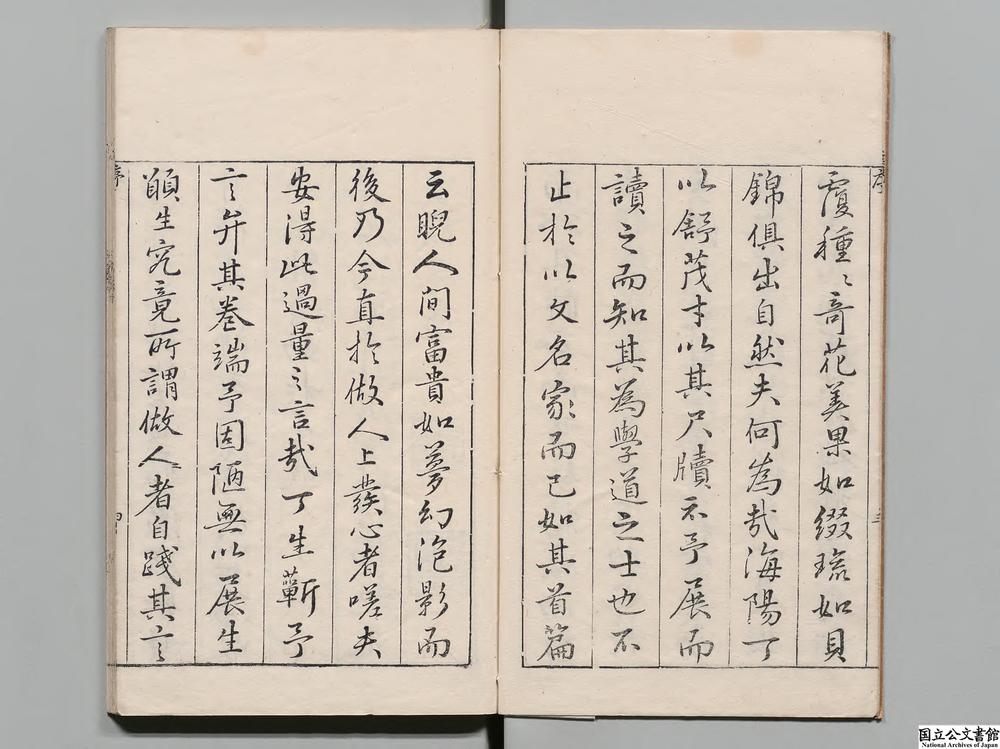 覆種〻奇花美果如綴琉如貝
錦俱出自然夫何為哉海陽丁
以舒茂才以其尺牘示予展而
讀之而知其為學道之士也不
止於以文名家而已如其首篇
云睨人間富貴如夢幻泡影而
後乃今直於做人上發心者嗟夫
安得此過量之言哉丁生蘄予
言弁其卷端予固陋無以展生
顧生究竟所謂做人者自踐其言
序
三
序
四
国立公文書館
National Archives of Japan